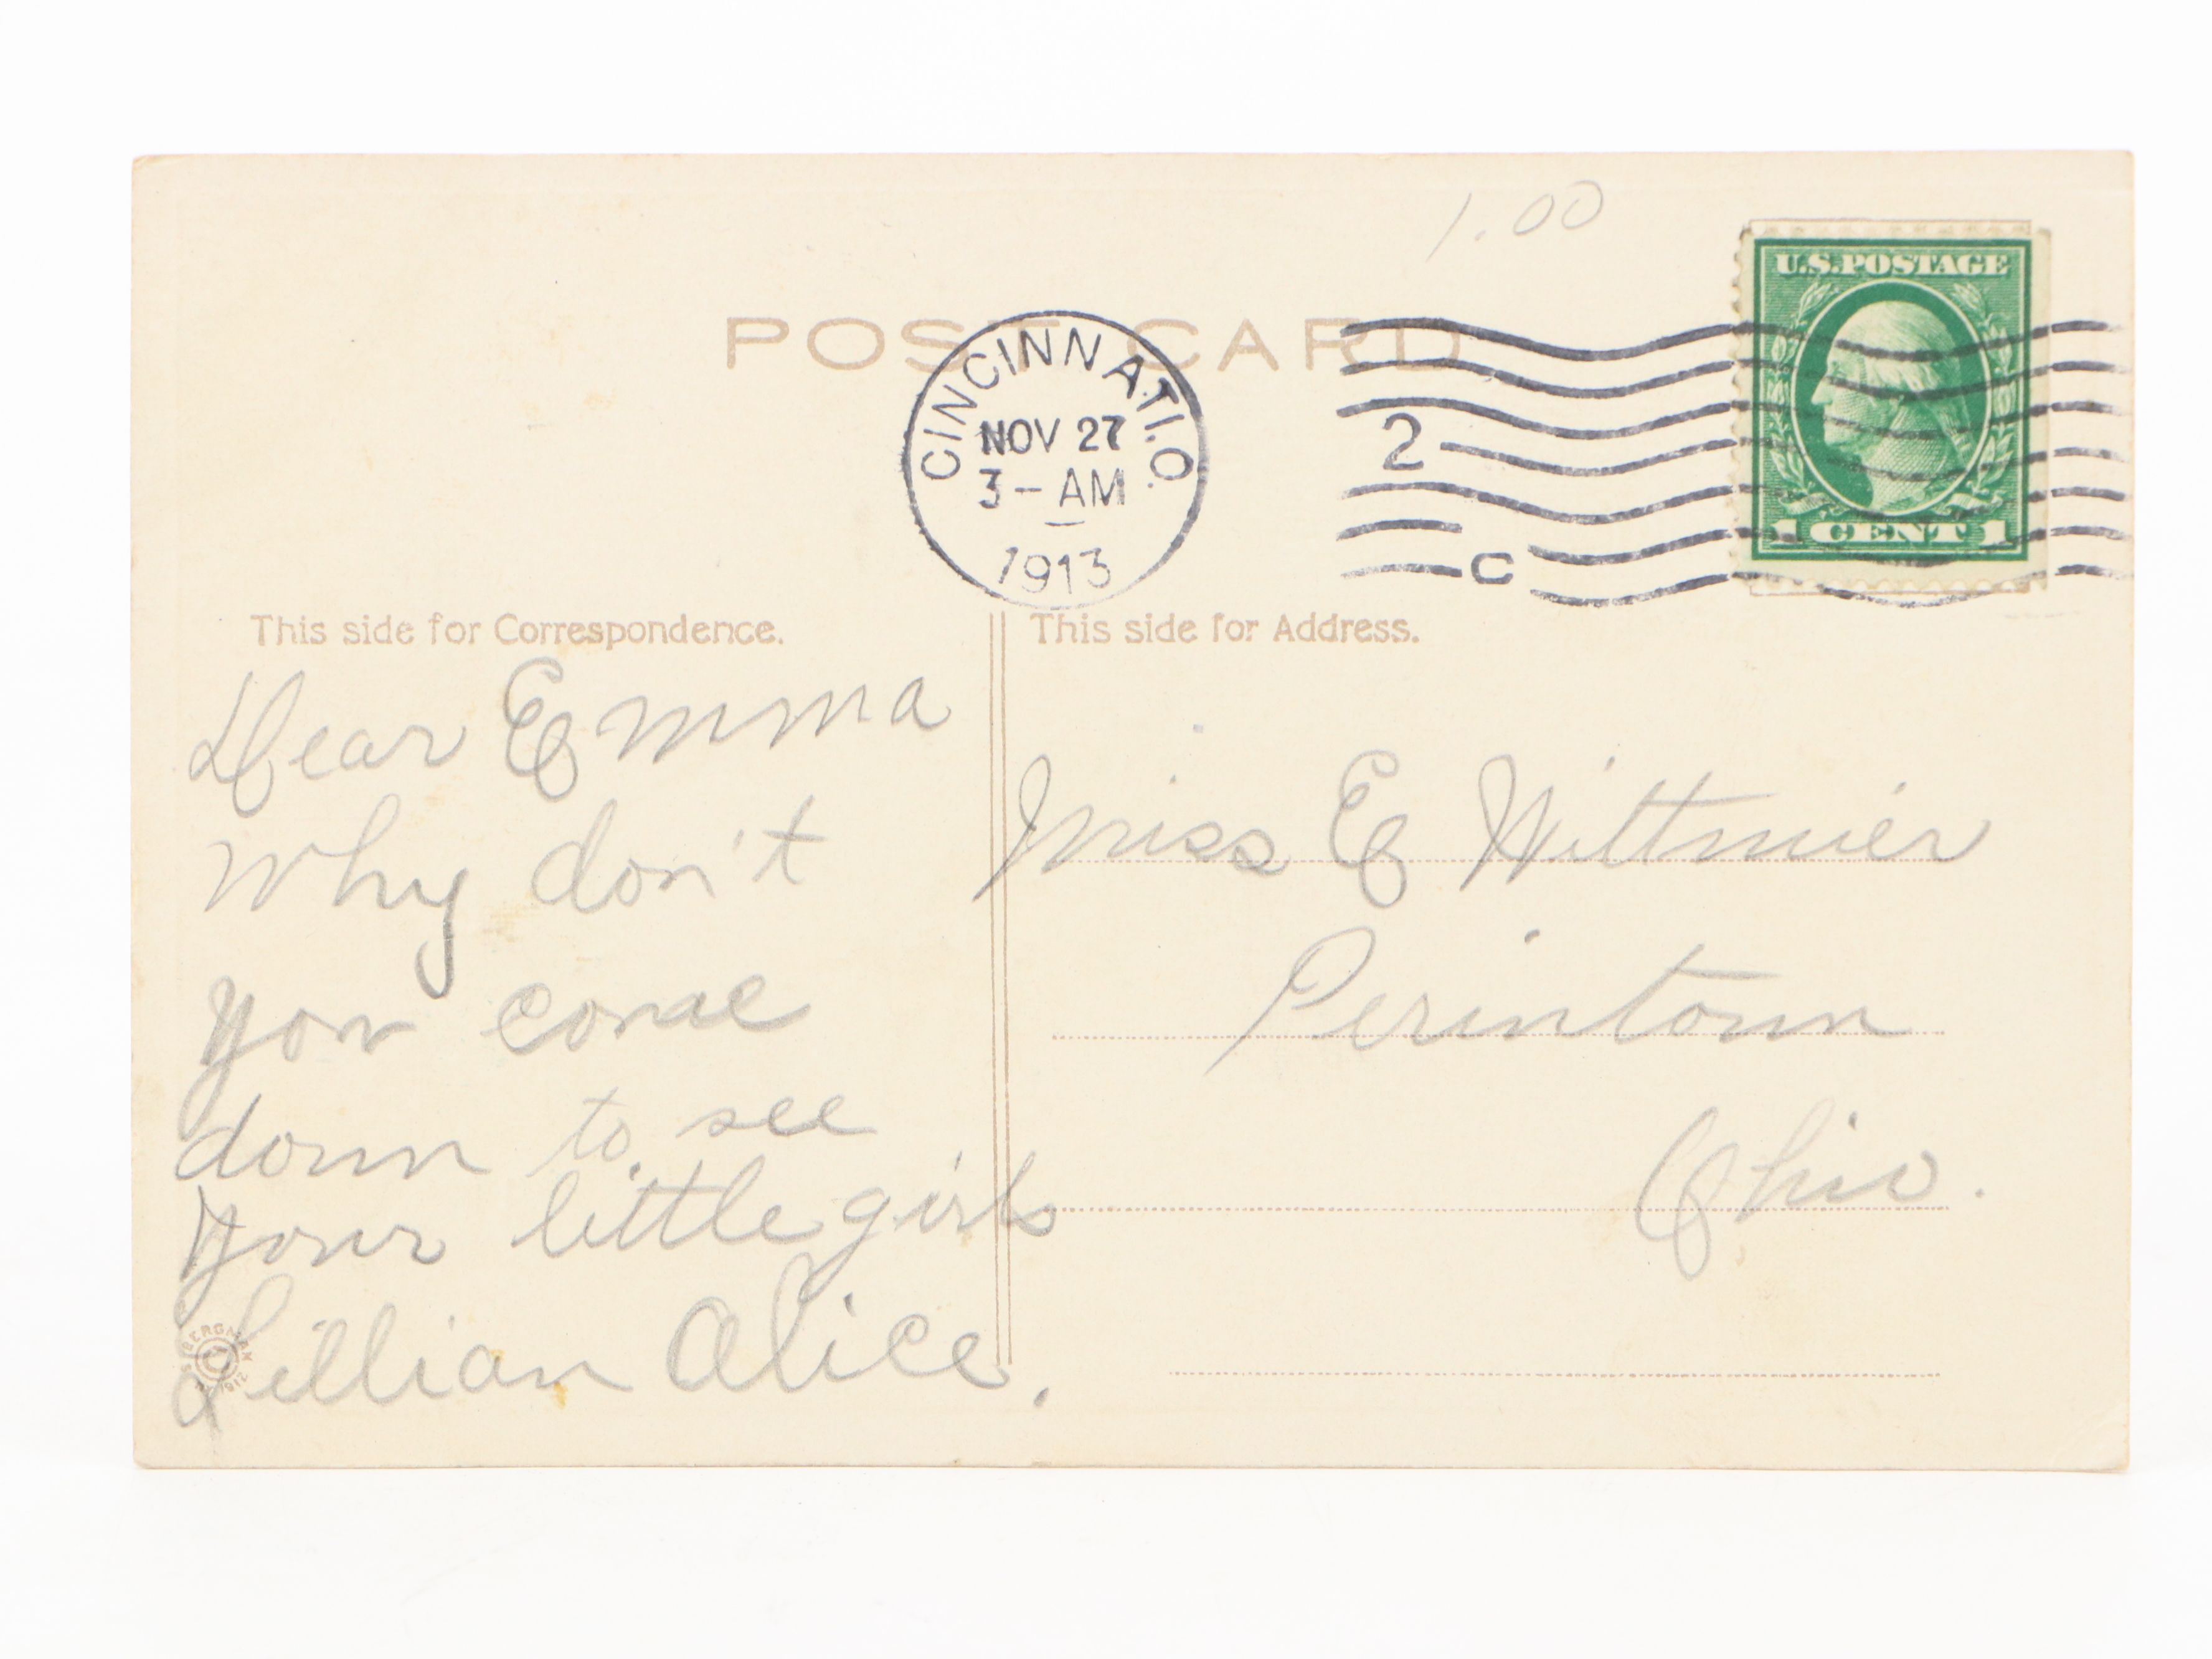 1.00
U.S.POSTAGE
1 CENT 1
POST CARD
CINCINNATI.O.
NOV 27
3-AM
1913
2
C
This side for Correspondence.
Dear Emma
Why don't
you come
down to see
your little girls
Lillian Alice.
This side for Address.
Miss E Wittmier
Perintown
Ohio.
BERGMAN
1912